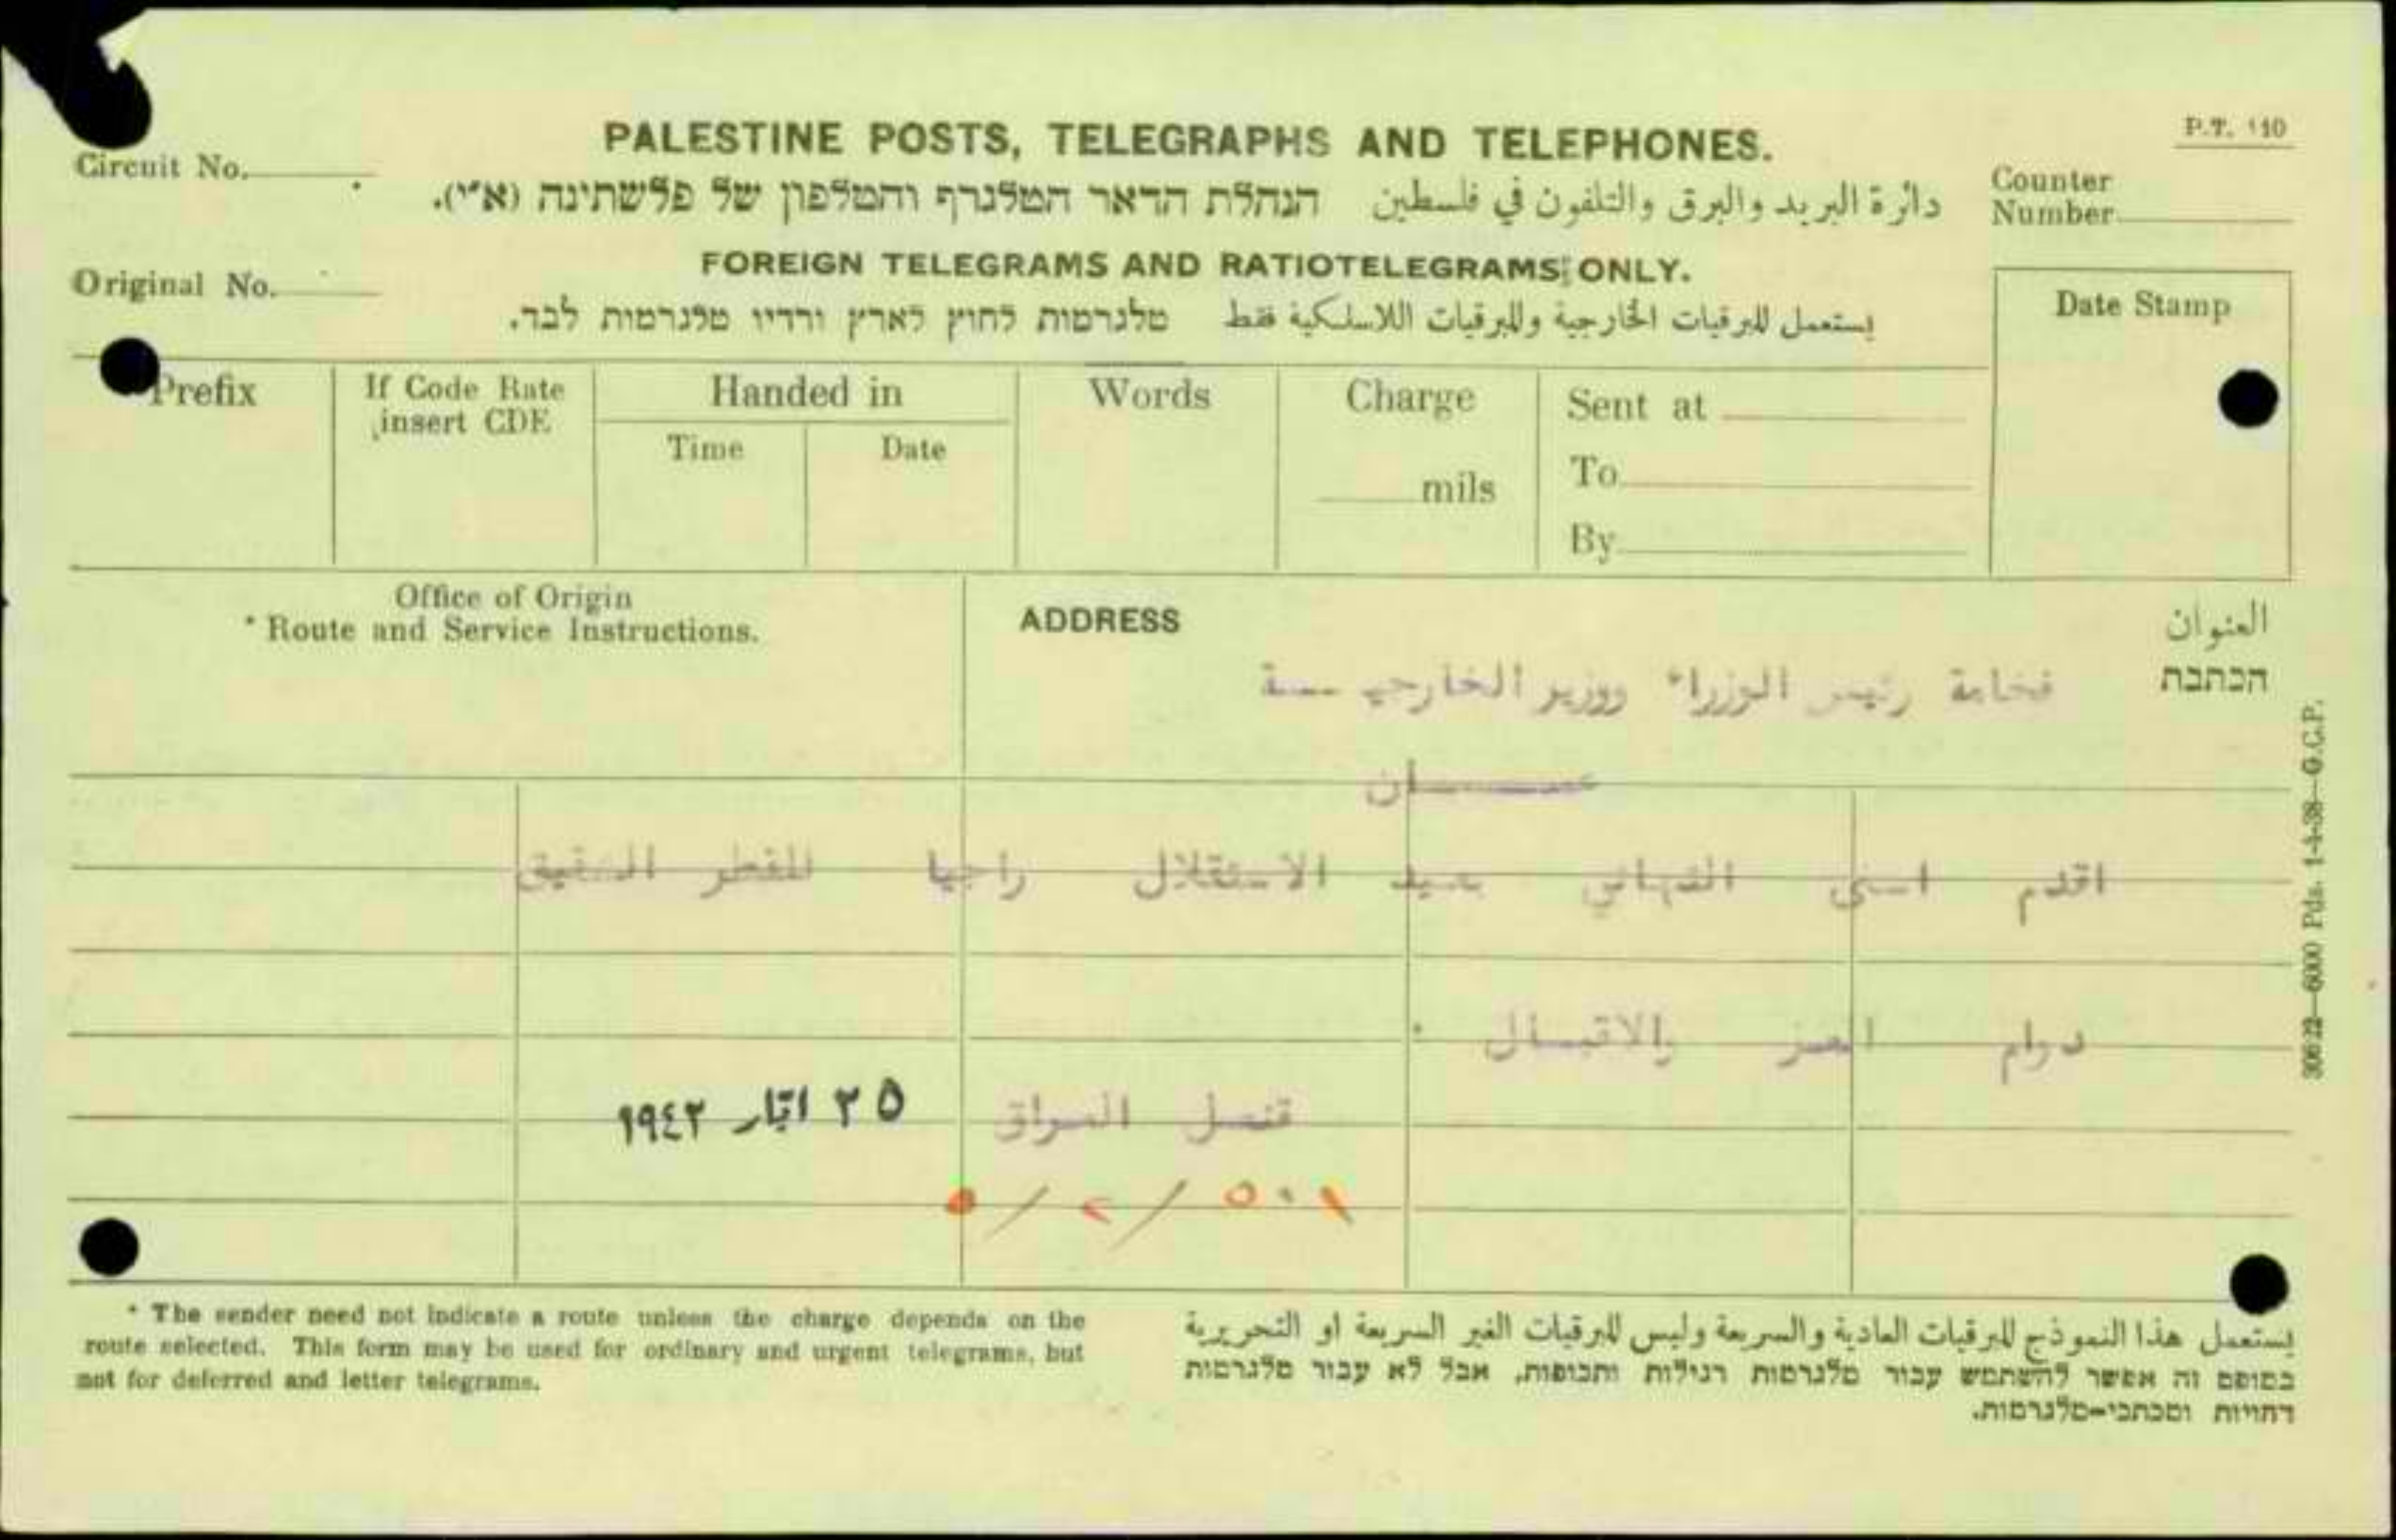 P.T. 110
PALESTINE POSTS, TELEGRAPHS AND TELEPHONES.
Circuit No.
دائرة البريد والبرق والتلفون في فلسطين הנהלת הדאר הטלגרף והטלפון של פלשתינה (א״י).
Counter
Number
FOREIGN TELEGRAMS AND RATIOTELEGRAMS ONLY.
Original No.
يستعمل للبرقيات الخارجية وللبرقيات اللاسلكية فقط טלגרמות לחוץ לארץ ורדיו טלגרמות לבד.
Date Stamp
Prefix
If Code Rate
insert CDE
Handed in
Time Date
Words
Charge
mils
Sent at
To
By
Office of Origin
* Route and Service Instructions.
ADDRESS
العنوان
הכתבת
فخامة رئيس الوزراء ووزير الخارجيـــة
عمـــــان
اقدم اسنى التهاني بعيد الاستقلال راجيا للقطر الشقيق
دوام العز والاقبال .
قنصل العراق
٢٥ ايار ١٩٤٢
٥ / ٢ / ٥٠١
30622—6000 Pds. 1-4-38—G.C.P.
* The sender need not indicate a route unless the charge depends on the
route selected. This form may be used for ordinary and urgent telegrams, but
not for deferred and letter telegrams.
يستعمل هذا النموذج للبرقيات العادية والسريعة وليس للبرقيات الغير السريعة او التحريرية
בטופס זה אפשר להשתמש עבור טלגרמות רגילות ותכופות, אבל לא עבור טלגרמות
דחויות ומכתבי-טלגרמות.